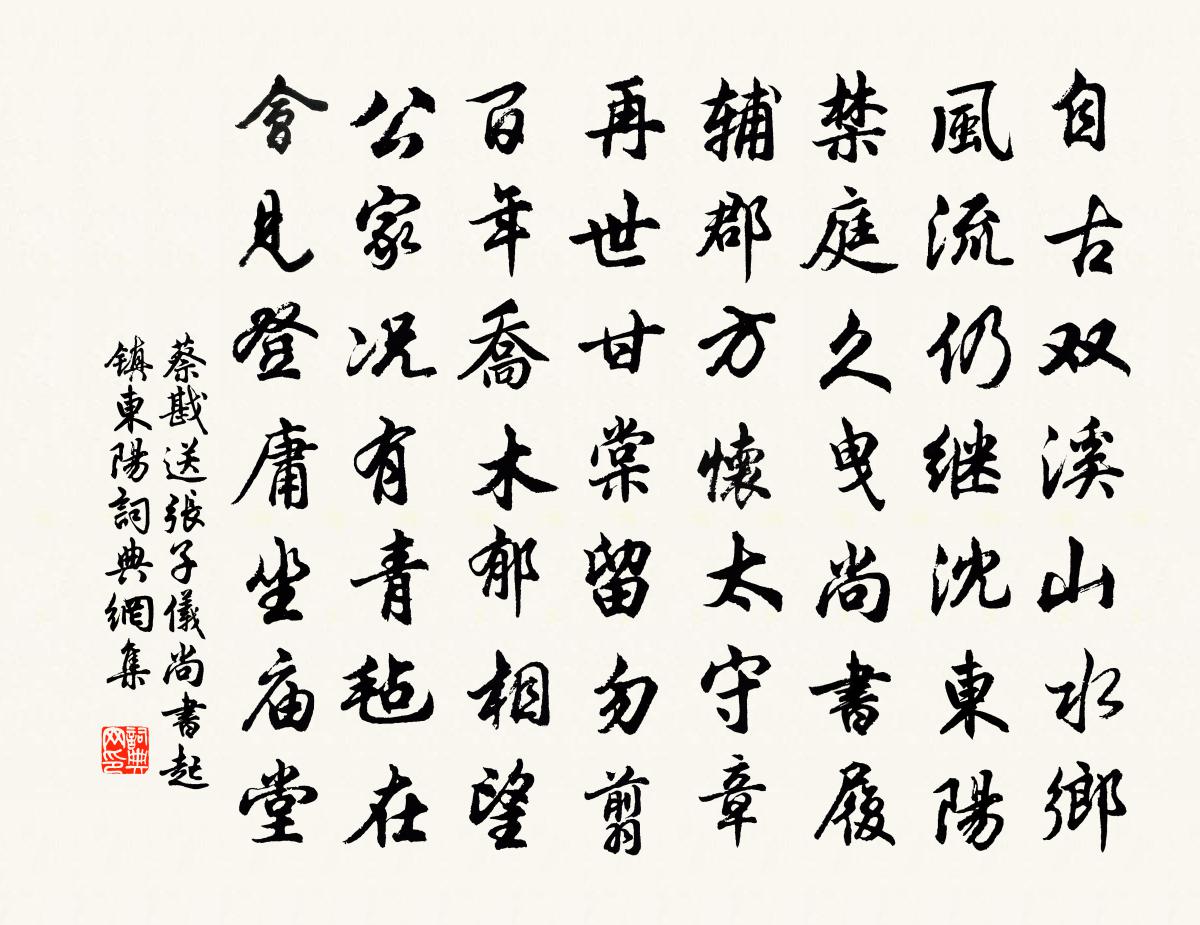 自古双溪山水鄉
風流仍继沈東陽
禁庭久曳尚書履
辅郡方懷太守章
再世甘棠留勿翦
百年喬木郁相望
公家况有青毡在
會見登庸坐庙堂
蔡戡送張子儀尚書起
镇東陽詞典網集
詞典
网印